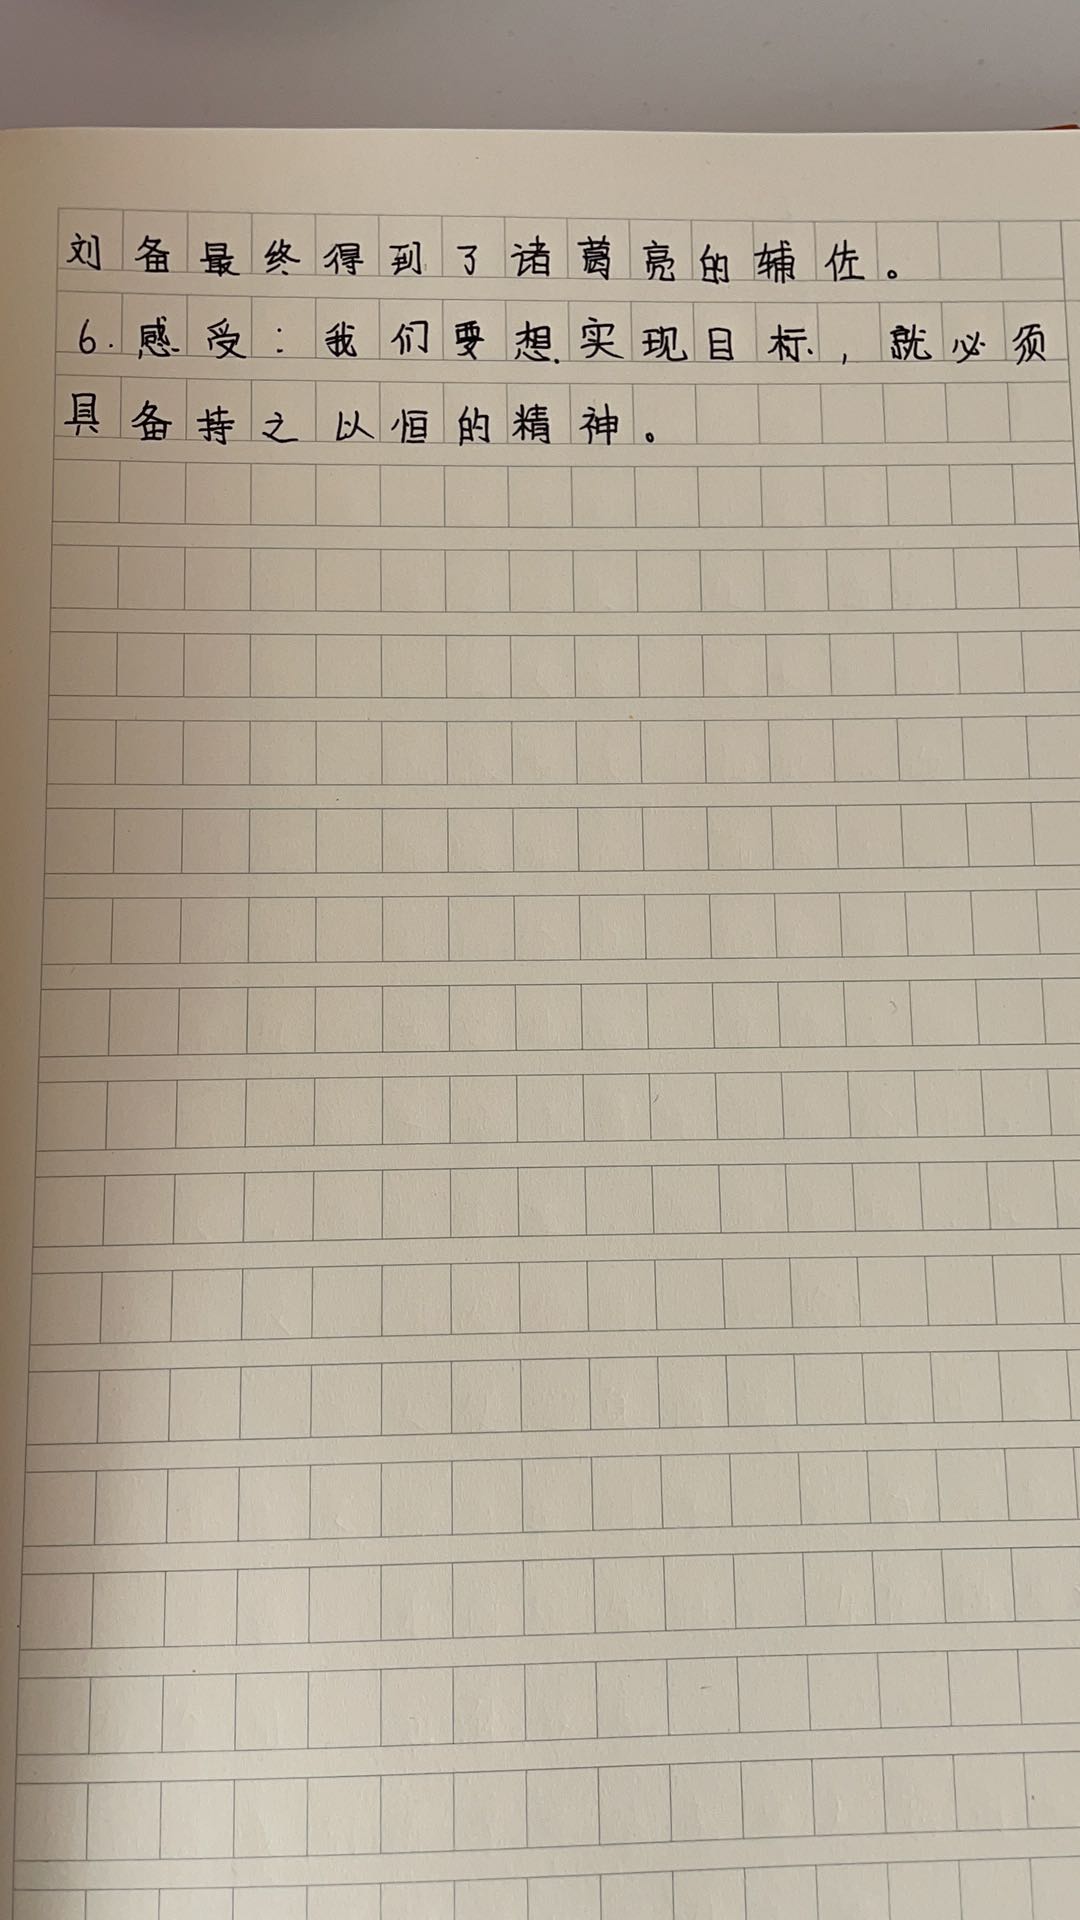 刘备最终得到了诸葛亮的辅佐。
6.感受：我们要想实现目标，就必须
具备持之以恒的精神。